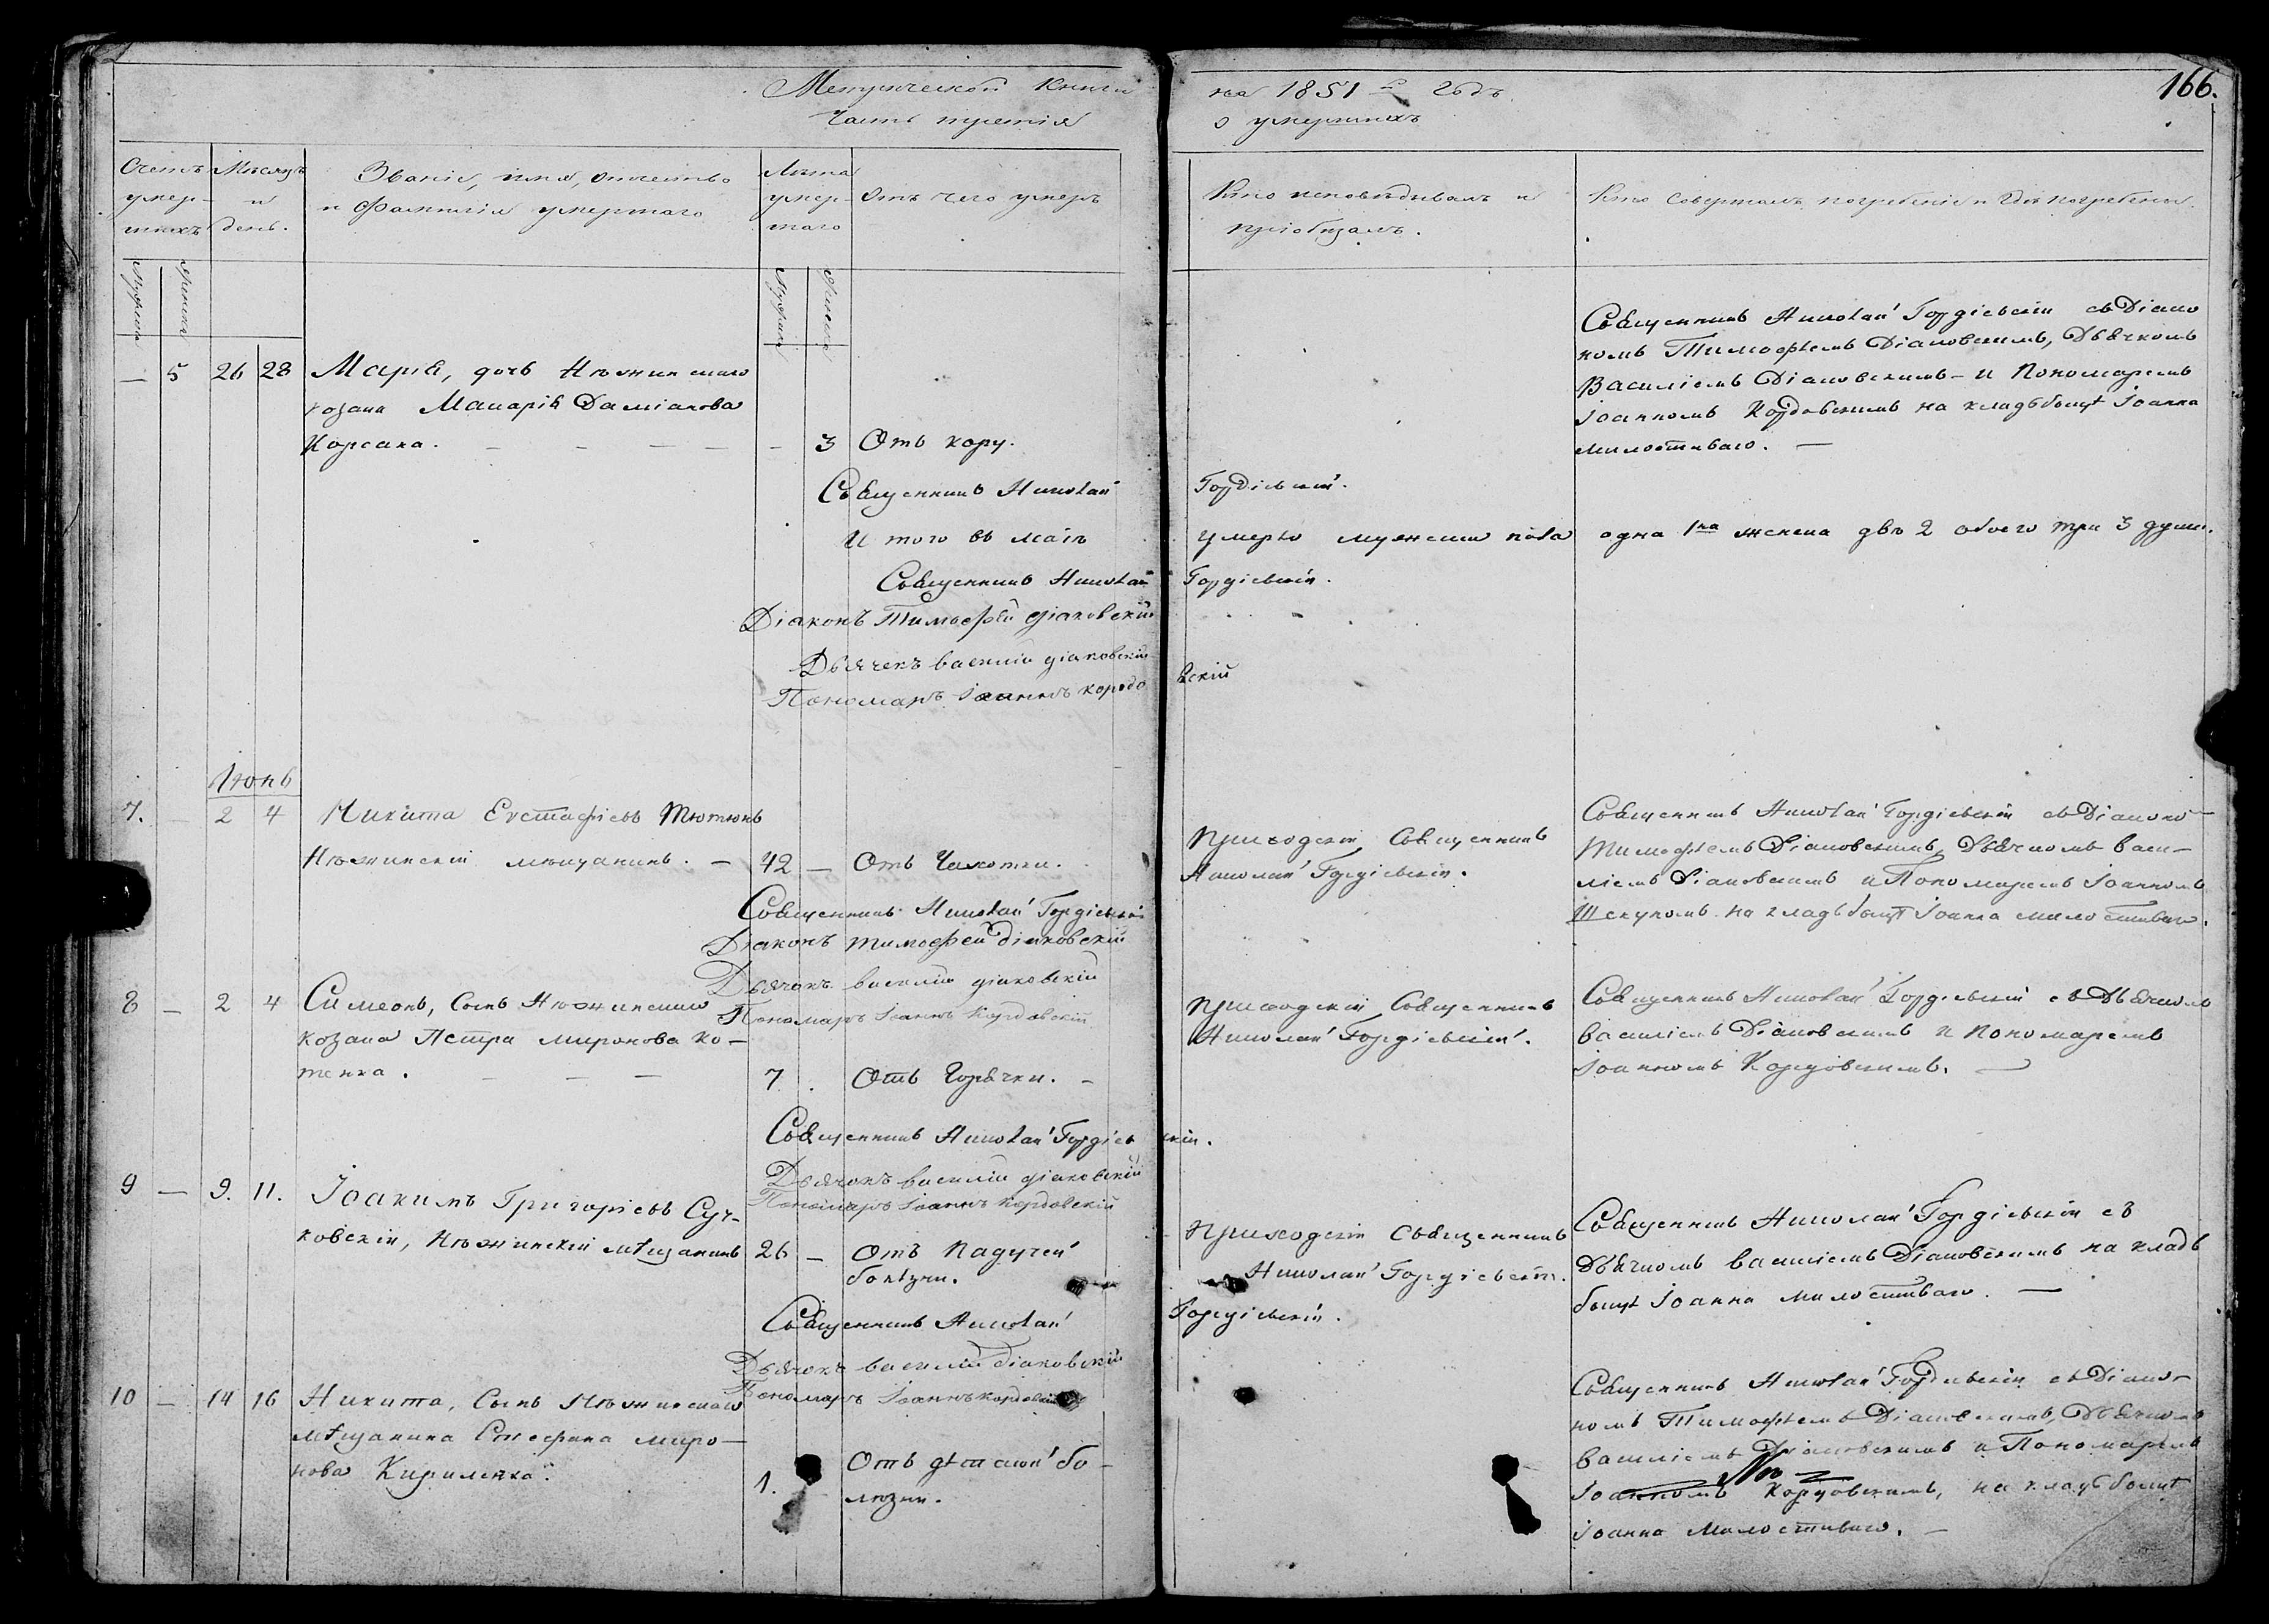 Метрической книги на 1851й годъ 166.
Часть третія о умершихъ
Счетъ умер- шихъ
Мѣсяцъ и день.
Званіе, имя, отчество и фамилія умершаго
Лѣта умер- шаго
Отъ чего умеръ
Кто исповѣдывалъ и пріобщалъ.
Кто совершалъ погребеніе и гдѣ погребены.
Мужеска Женска
Мужеска Женска
— 5 26 28 Марія, дочь Нѣжинскаго
козака Макарія Даміанова
Корсака. — 3 Отъ кору.
Священникъ Николай Гордіевскій съ Діако
номъ Тимофѣемъ Діаковскимъ, Дьячкомъ
Василіемъ Діаковскимъ и Пономаремъ
Іоанномъ Кордовскимъ на кладбищѣ Іоанна
милостиваго. —
Священникъ Николай Гордіевскій.
И того въ маіѣ умерло мужеска пола одна 1на женска двѣ 2 обоего три 3 души.
Священникъ Николай Гордіевскій.
Діаконъ Тимофѣй Діаковскій
Дьячекъ Василій Діаковскій
Пономарь Іоаннъ Кордовскій
Іюнь
7. — 2 4 Никита Евстафіевъ Тютюнъ
Нѣжинскій мѣщанинъ. — 42 — Отъ Чахотки.
Приходскій Священникъ
Николай Гордіевскій.
Священникъ Николай Гордіевскій съ Діакономъ
Тимофѣемъ Діаковскимъ, Дьячкомъ Васи-
ліемъ Діаковскимъ и Пономаремъ Іоанномъ
на кладбищѣ Іоанна милостиваго.
Священникъ Николай Гордіевскій
Діаконъ Тимофей Діаковскій
Дьячокъ Василій Діаковскій
Пономарь Іоаннъ Кордовскій
8 — 2 4 Симеонъ, Сынъ Нѣжинскаго
козака Петра Миронова Ко-
тенка. — — — 7 . Отъ Горячки. -
Приходскій Священникъ
Николай Гордіевскій.
Священникъ Николай Гордіевскій съ Дьячкомъ
Василіемъ Діаковскимъ и Пономаремъ
Іоанномъ Кордовскимъ. —
Священникъ Николай Гордіевскій.
Дьячокъ Василій Діаковскій
Пономарь Іоаннъ Кордовскій
9 — 9. 11. Іоакимъ Григоріевъ Суч-
ковскій, Нѣжинскій мѣщанинъ 26 — Отъ падучей
болѣзни.
Приходскій Священникъ
Николай Гордіевскій.
Священникъ Николай Гордіевскій съ
Дьячкомъ Василіемъ Діаковскимъ на клад
бищѣ Іоанна милостиваго. —
Священникъ Николай Гордіевскій.
Дьячокъ Василій Діаковскій
Пономарь Іоаннъ Кордовскій
10 — 14 16 Никита, Сынъ Нѣжинскаго
мѣщанина Стефана Миро-
нова Кириленка. 1. Отъ дѣтской бо-
лѣзни.
Священникъ Николай Гордіевскій съ Діако-
номъ Тимофѣемъ Діаковскимъ, Дьячкомъ
Василіемъ Діаковскимъ и Пономаремъ
Іоанномъ Кордовскимъ, на кладбищѣ
Іоанна Милостиваго. —